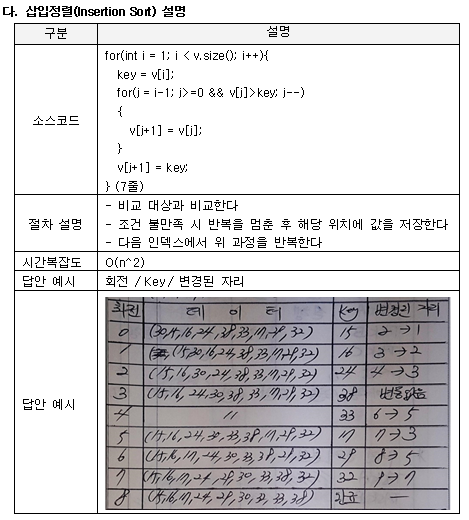 다. 삽입정렬(Insertion Sort) 설명
구분 설명
소스코드
for(int i = 1; i < v.size(); i++){
key = v[i];
for(j = i-1; j>=0 && v[j]>key; j--)
{
v[j+1] = v[j];
}
v[j+1] = key;
} (7줄)
절차 설명
- 비교 대상과 비교한다
- 조건 불만족 시 반복을 멈춘 후 해당 위치에 값을 저장한다
- 다음 인덱스에서 위 과정을 반복한다
시간복잡도 O(n^2)
답안 예시 회전 / Key / 변경된 자리
답안 예시
회전 데이터 Key 변경된 자리
0 (30,15,16,24,38,33,17,29,32) 15 2→1
1 (15,30,16,24,38,33,17,29,32) 16 3→2
2 (15,16,30,24,38,33,17,29,32) 24 4→3
3 (15,16,24,30,38,33,17,29,32) 38 변동없음
4 〃 33 6→5
5 (15,16,24,30,33,38,17,29,32) 17 7→3
6 (15,16,17,24,30,33,38,29,32) 29 8→5
7 (15,16,17,24,29,30,33,38,32) 32 9→7
8 (15,16,17,24,29,30,32,33,38) 완료 —